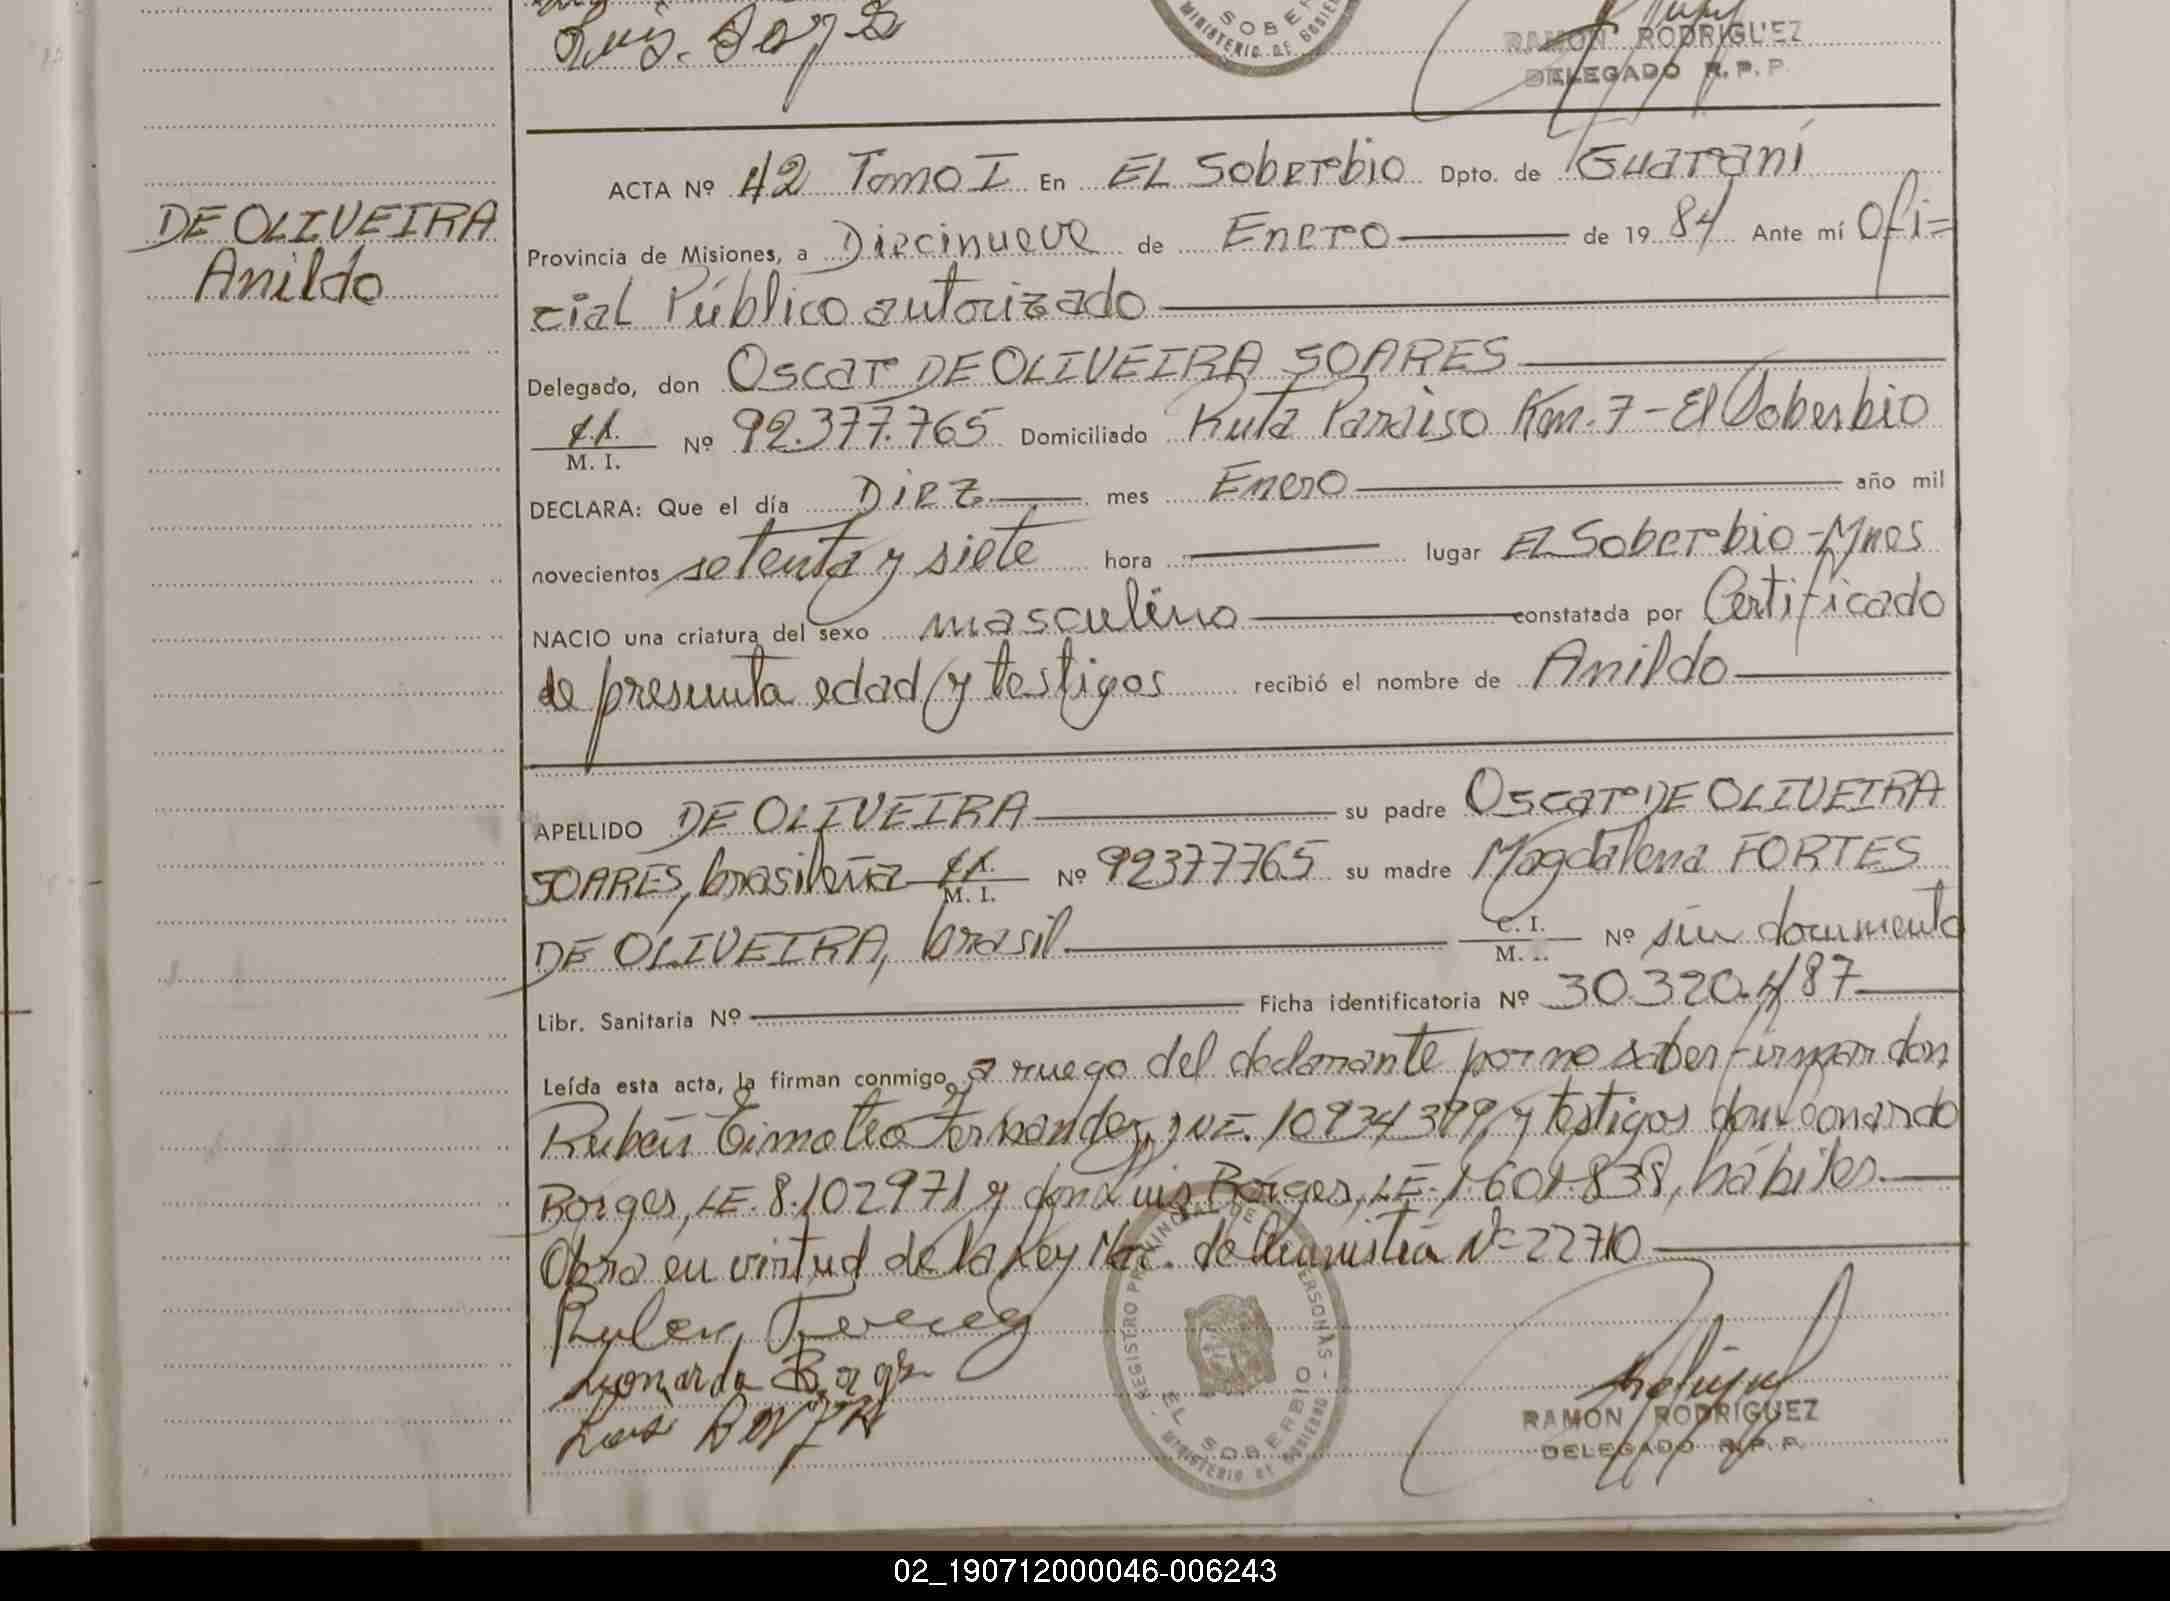 Luis. Borges
MINISTERIO DE GOBIERNO
RAMON RODRIGUEZ
DELEGADO R. P. P.
DE OLIVEIRA
Anildo
ACTA Nº 42 Tomo I En EL Soberbio Dpto. de Guaraní
Provincia de Misiones, a Diecinueve de Enero de 19 84 Ante mí Ofi=
cial Público autorizado
Delegado, don Oscar DE OLIVEIRA SOARES
C.I. M. I. Nº 92.377.765 Domiciliado Ruta Paraiso Km. 7 - El Soberbio
DECLARA: Que el día Diez mes Enero año mil
novecientos setenta y siete hora lugar EL Soberbio - Mnes
NACIO una criatura del sexo masculino constatada por Certificado
de presunta edad y testigos recibió el nombre de Anildo
APELLIDO DE OLIVEIRA su padre Oscar DE OLIVEIRA
SOARES, brasileña C.I. M. I. Nº 92377765 su madre Magdalena FORTES
DE OLIVEIRA, brasil C. I. M. Nº sin documento
Libr. Sanitaria Nº Ficha identificatoria Nº 30.320.487
Leída esta acta, la firman conmigo, a ruego del declarante por no saber firmar don
Rubén Timoteo Fernandez, DNI. 10934399, y testigos don Leonardo
Borges, LE. 8.102971 y don Luis Borges, LE. 1.601.838, hábiles.
Obra en virtud de la Ley Nac. de Amnistía Nº 22710
Ruben
Leonardo Borges
Luis Borges
REGISTRO PROVINCIAL DE PERSONAS
EL SOBERBIO
MINISTERIO DE GOBIERNO
RAMON RODRIGUEZ
DELEGADO R. P. P.
02_190712000046-006243